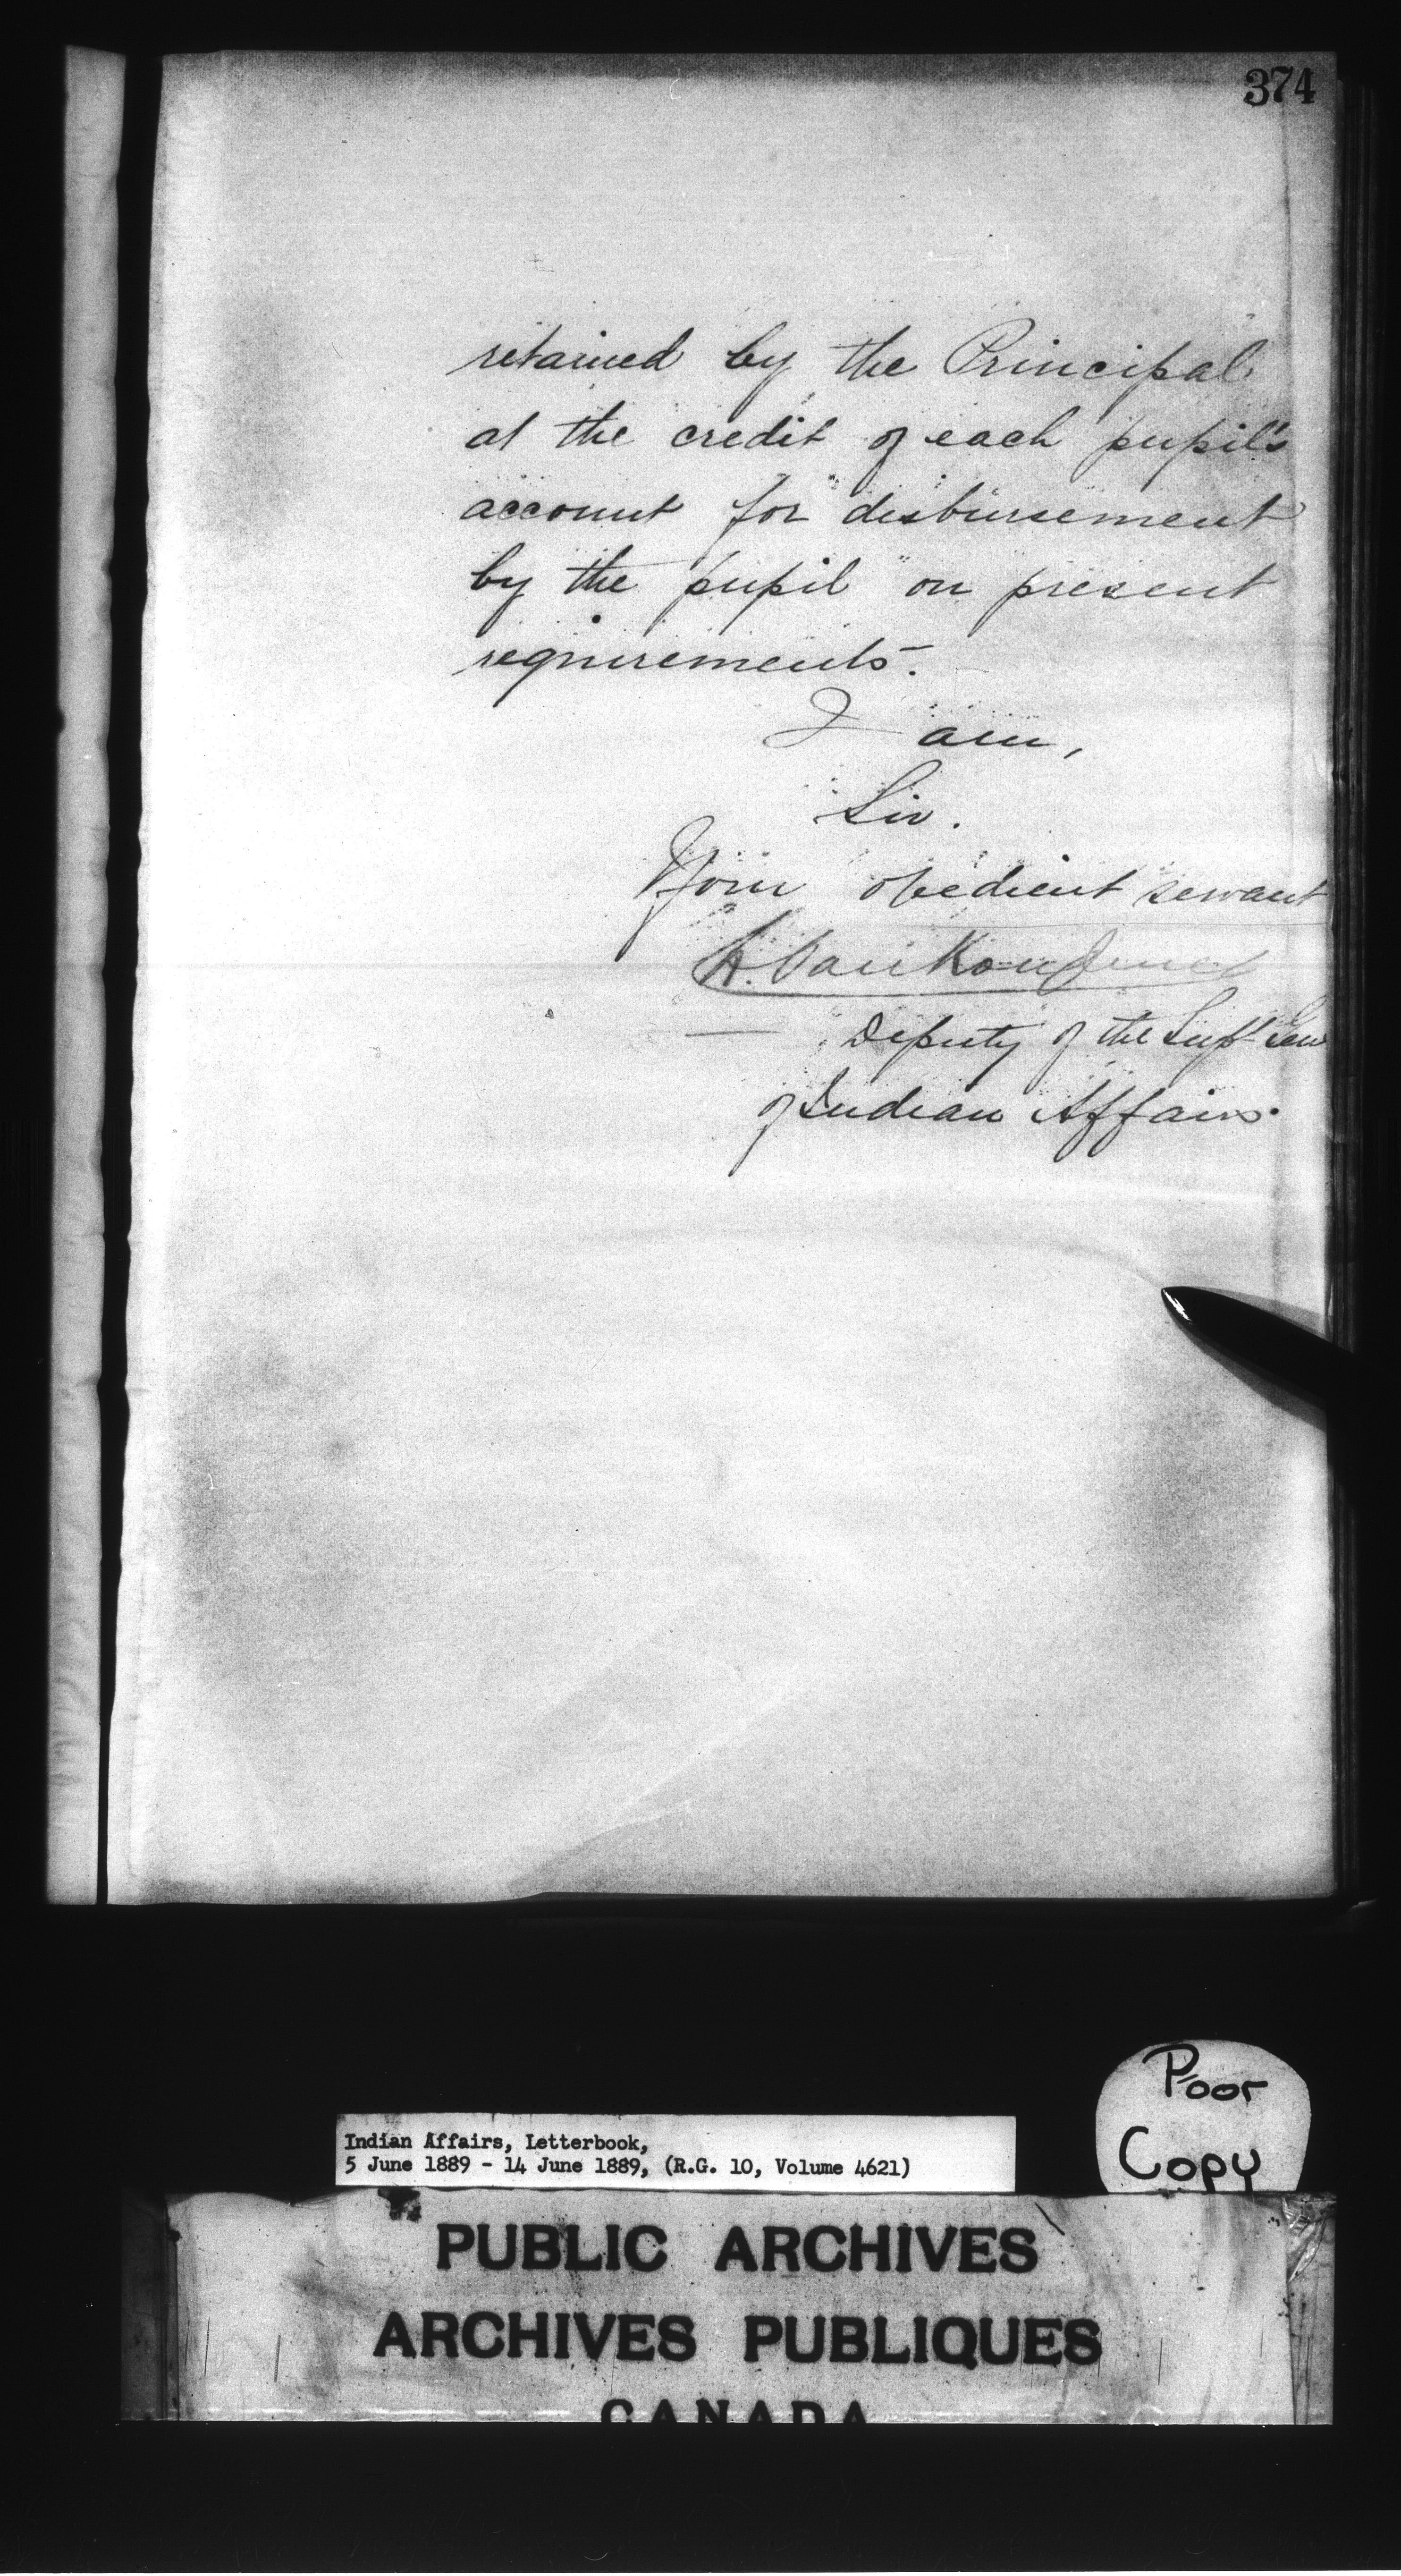 374
retained by the Principal
at the credit of each pupil's
account for disbursement
by the pupil on present
requirements.
I am,
Sir.
Your obedient servant
L. Vankoughnet
Deputy of the Supt Gen
of Indian Affairs.
Poor
Copy
Indian Affairs, Letterbook,
5 June 1889 - 14 June 1889, (R.G. 10, Volume 4621)
PUBLIC ARCHIVES
ARCHIVES PUBLIQUES
CANADA